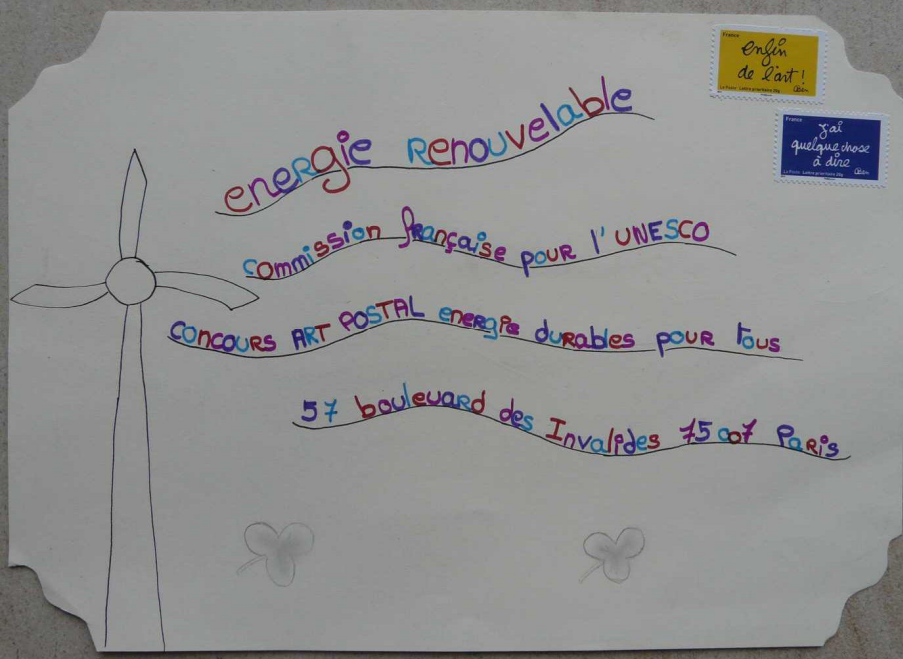 France
enfin
de l'art !
Ben
La Poste - Lettre prioritaire 20g
France
j'ai
quelque chose
à dire
Ben
La Poste - Lettre prioritaire 20g
energie renouvelable
commission française pour l'UNESCO
concours ART POSTAL energie durables pour tous
57 boulevard des Invalides 75007 Paris